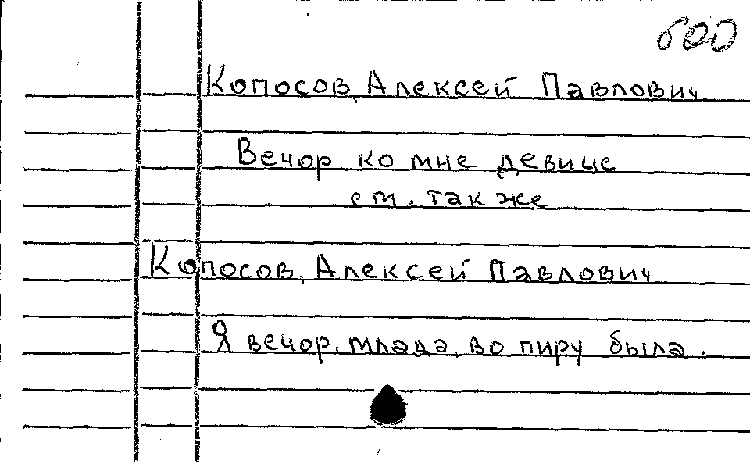 600
Копосов, Алексей Павлович
Вечор ко мне девице
ст. так же
Копосов, Алексей Павлович
Я вечор, млада, во пиру была.